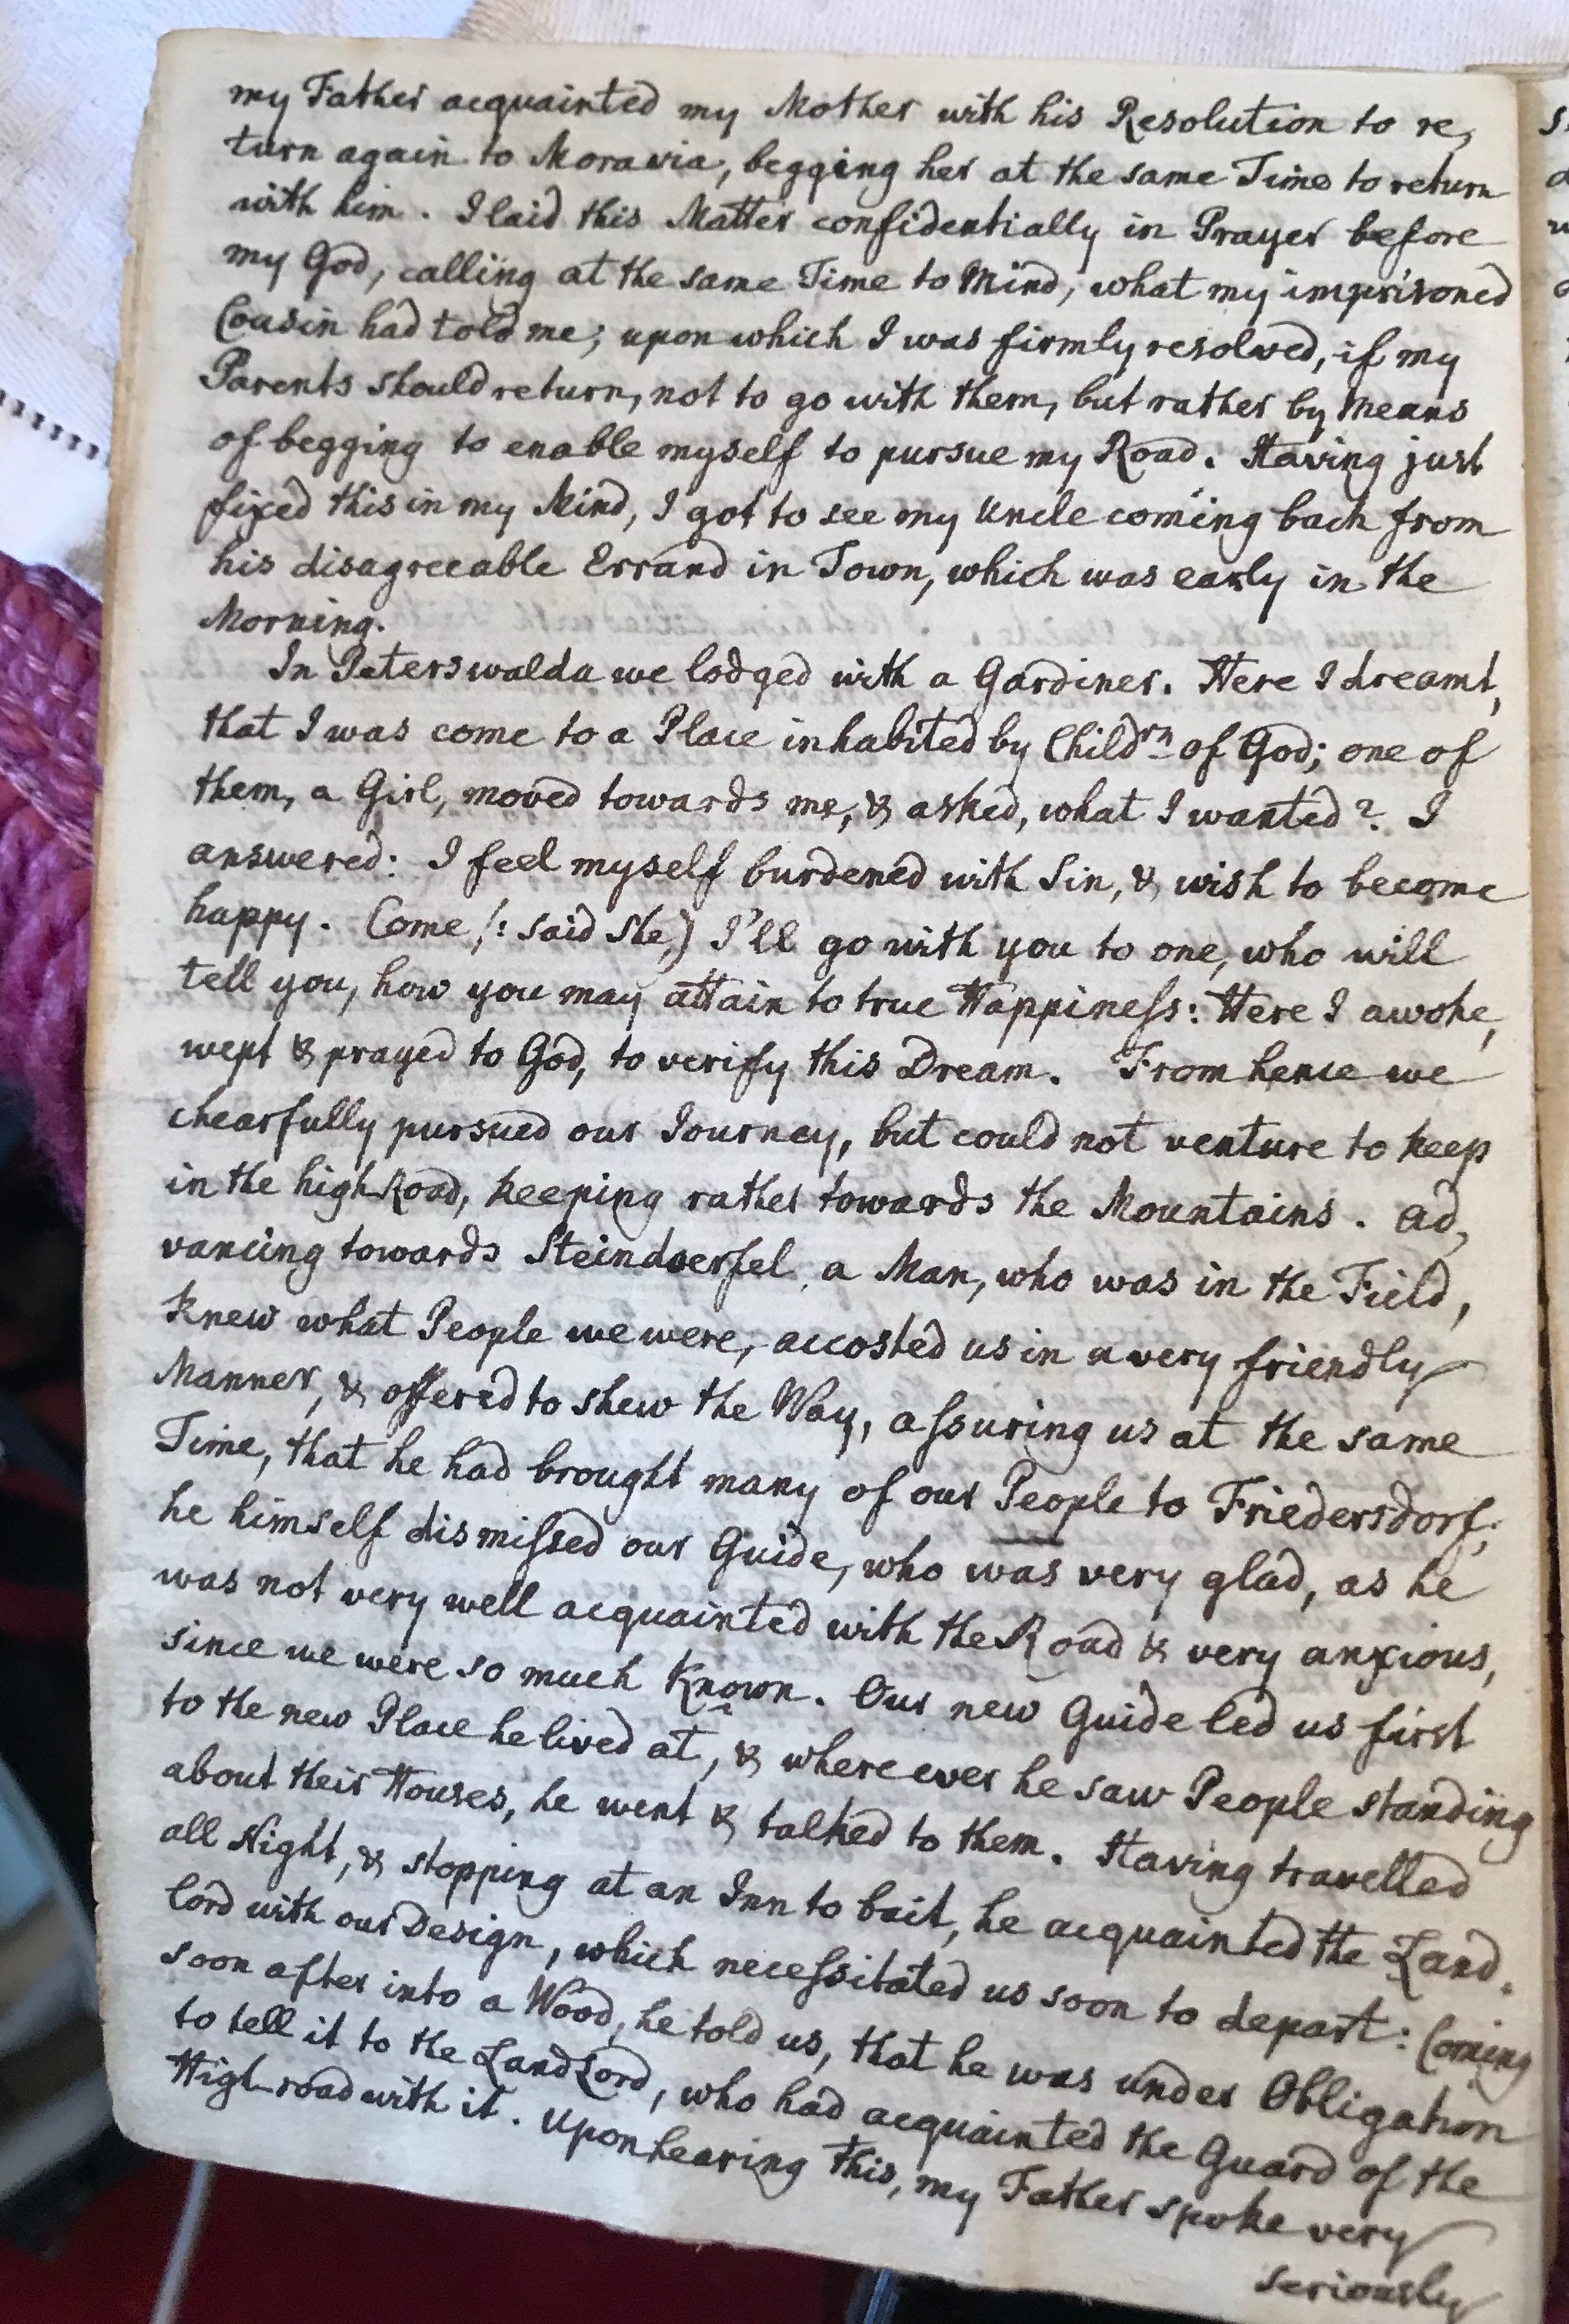 my Father acquainted my Mother with his Resolution to re,
turn again to Moravia, begging her at the same Time to return
with him. I laid this Matter confidentially in Prayer before
my God, calling at the same Time to Mind, what my imprisoned
Cousin had told me; upon which I was firmly resolved, if my
Parents should return, not to go with them, but rather by Means
of begging to enable myself to pursue my Road. Having just
fixed this in my Mind, I got to see my Uncle coming back from
his disagreeable Errand in Town, which was early in the
Morning.
In Peterswalda we lodged with a Gardiner. Here I dreamt,
that I was come to a Place inhabited by Childrn of God; one of
them, a Girl, moved towards me, & asked, what I wanted? I
answered: I feel myself burdened with Sin, & wish to become
happy. Come (: said she,) I'll go with you to one, who will
tell you, how you may attain to true Happineſs: Here I awoke,
wept & prayed to God, to verify this Dream. From hence we
chearfully pursued our Journey, but could not venture to keep
in the high Road, keeping rather towards the Mountains. Ad,
vancing towards Steindoerfel, a Man, who was in the Field,
knew what People we were, accosted us in a very friendly
Manner, & offered to shew the Way, aſsuring us at the same
Time, that he had brought many of our People to Friedersdorf;
he himself dismiſsed our Guide, who was very glad, as he
was not very well acquainted with the Road & very anxious,
since we were so much Known. Our new Guide led us first
to the new Place he lived at, & where ever he saw People standing
about their Houses, he went & talked to them. Having travelled
all Night, & stopping at an Inn to bait, he acquainted the Land,
lord with our Design, which neceſsitated us soon to depart: Coming
soon after into a Wood, he told us, that he was under Obligation
to tell it to the LandLord, who had acquainted the Guard of the
High-road with it. Upon hearing this, my Father spoke very
seriously